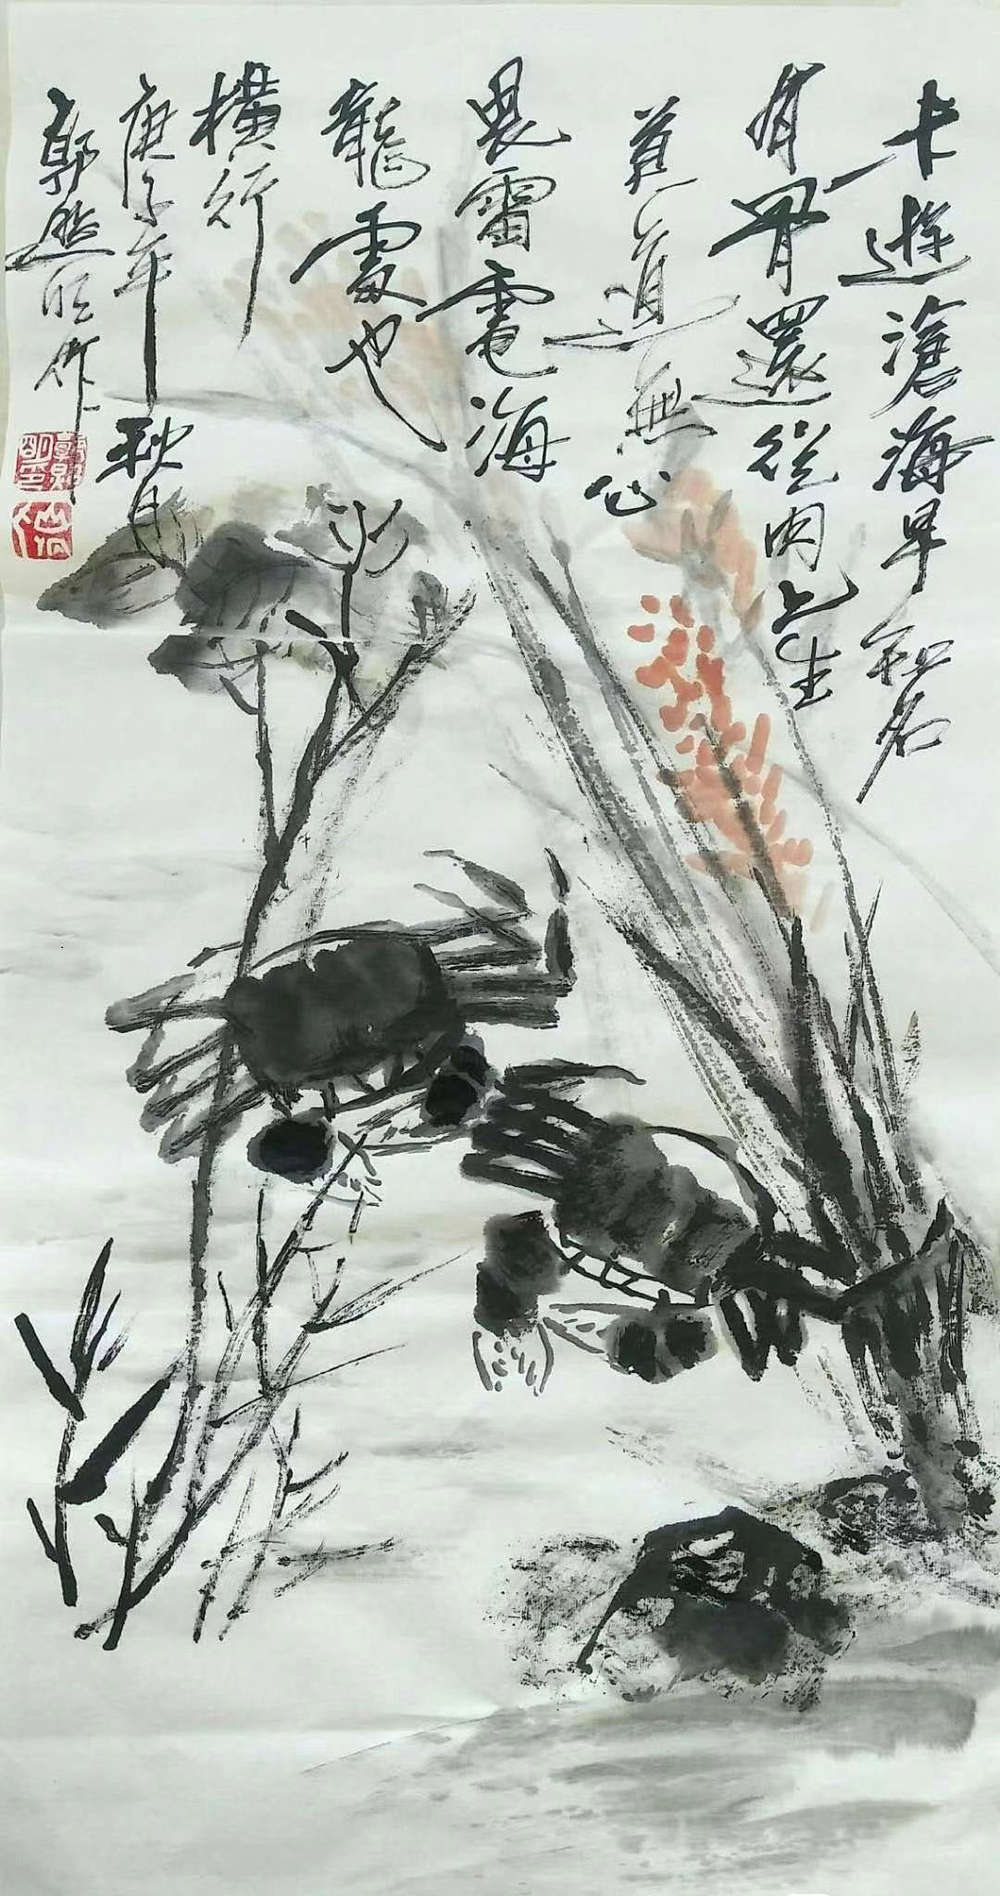 未遊滄海早知名
有骨還從肉上生
莫道無心
畏雷電海
龍處也
橫行
庚子年秋月
郭明作